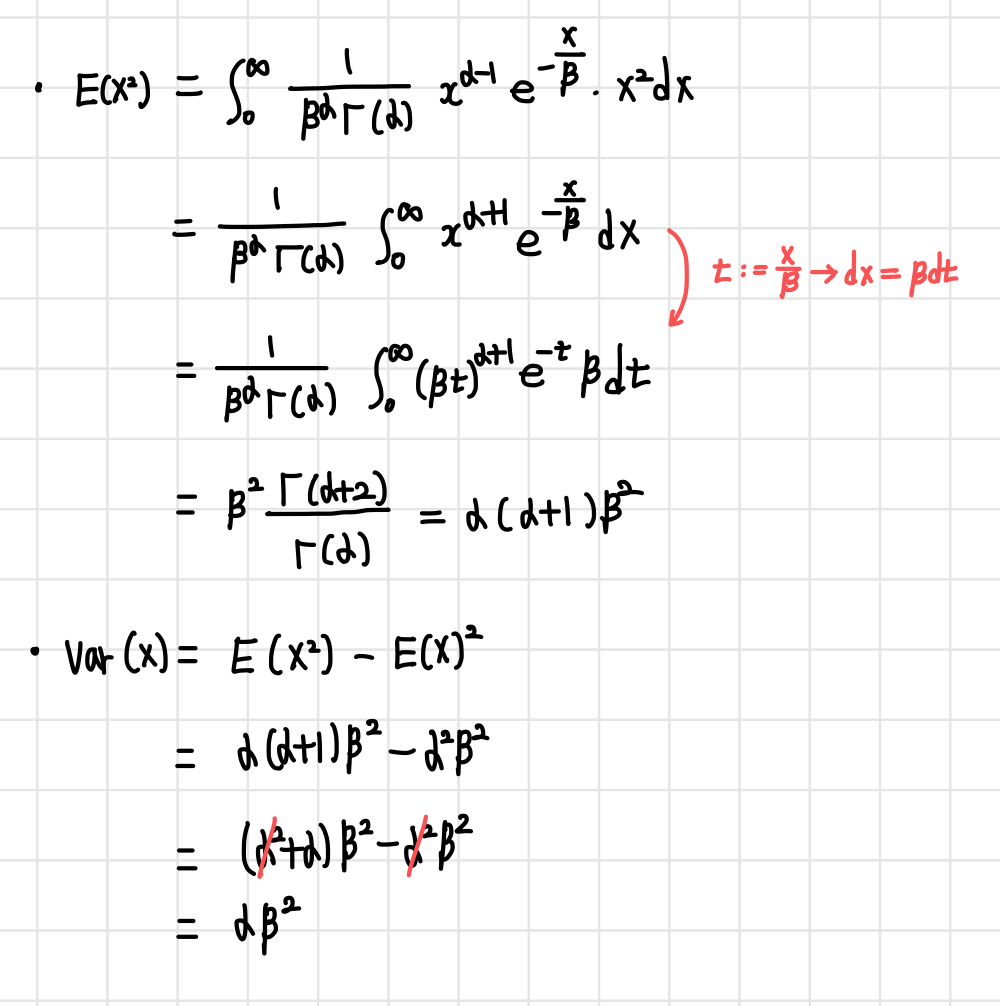 · E(X²) = ∫₀^∞ 1/(β^α Γ(α)) x^(α-1) e^(-x/β) · x² dx
= 1/(β^α Γ(α)) ∫₀^∞ x^(α+1) e^(-x/β) dx
t := x/β → dx = βdt
= 1/(β^α Γ(α)) ∫₀^∞ (βt)^(α+1) e^(-t) βdt
= β² Γ(α+2)/Γ(α) = α(α+1)β²
· Var(X) = E(X²) - E(X)²
= α(α+1)β² - α²β²
= (α²+α)β² - α²β²
= αβ²